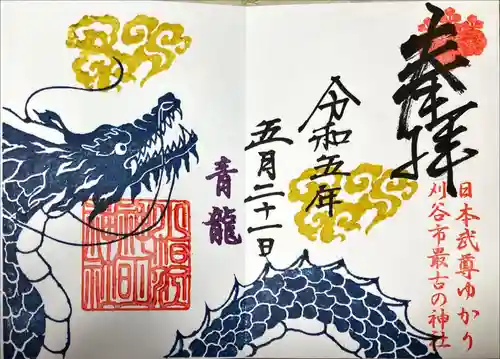 奉拝
日本武尊ゆかり
刈谷市最古の神社
令和五年
五月二十一日
青龍